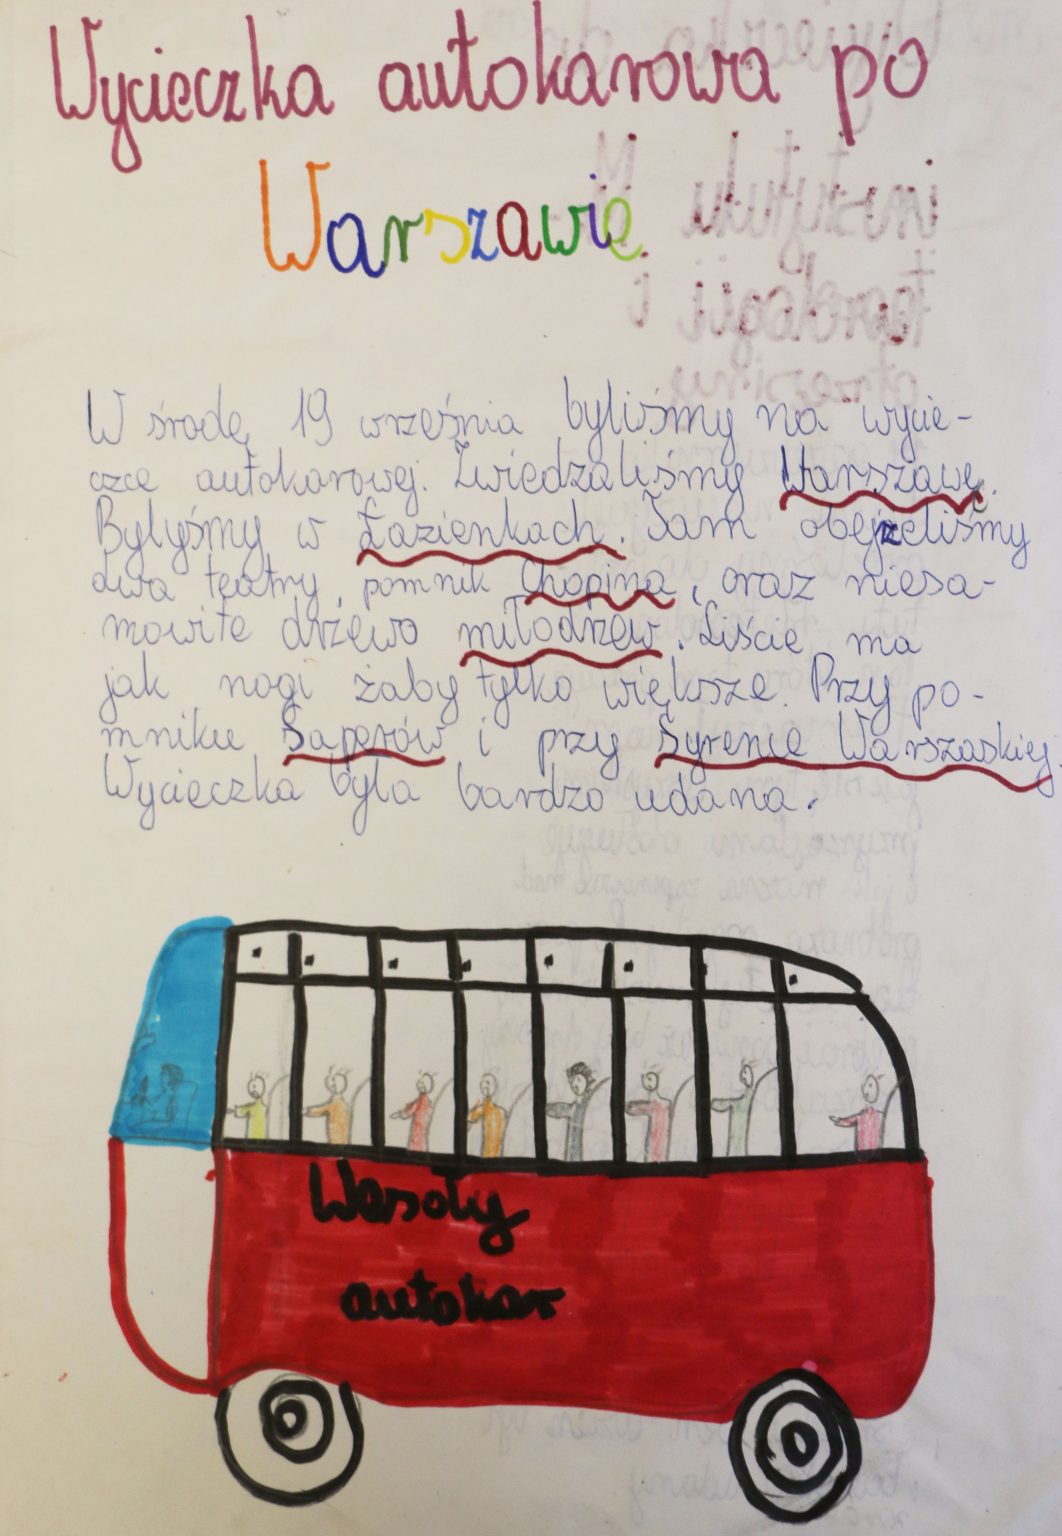 Wycieczka autokarowa po
Warszawie
W środę 19 września byliśmy na wycie-
czce autokarowej. Zwiedzaliśmy Warszawę.
Bylyśmy w Łazienkach. Tam obejrzeliśmy
dwa teatry, pomnik Chopina, oraz niesa-
mowite drzewo miłodrzew. Liście ma
jak nogi żaby tylko większe. Przy po-
mniku Saperów i przy Syrenie Warszaskiej.
Wycieczka była bardzo udana.
Wesoły
autokar